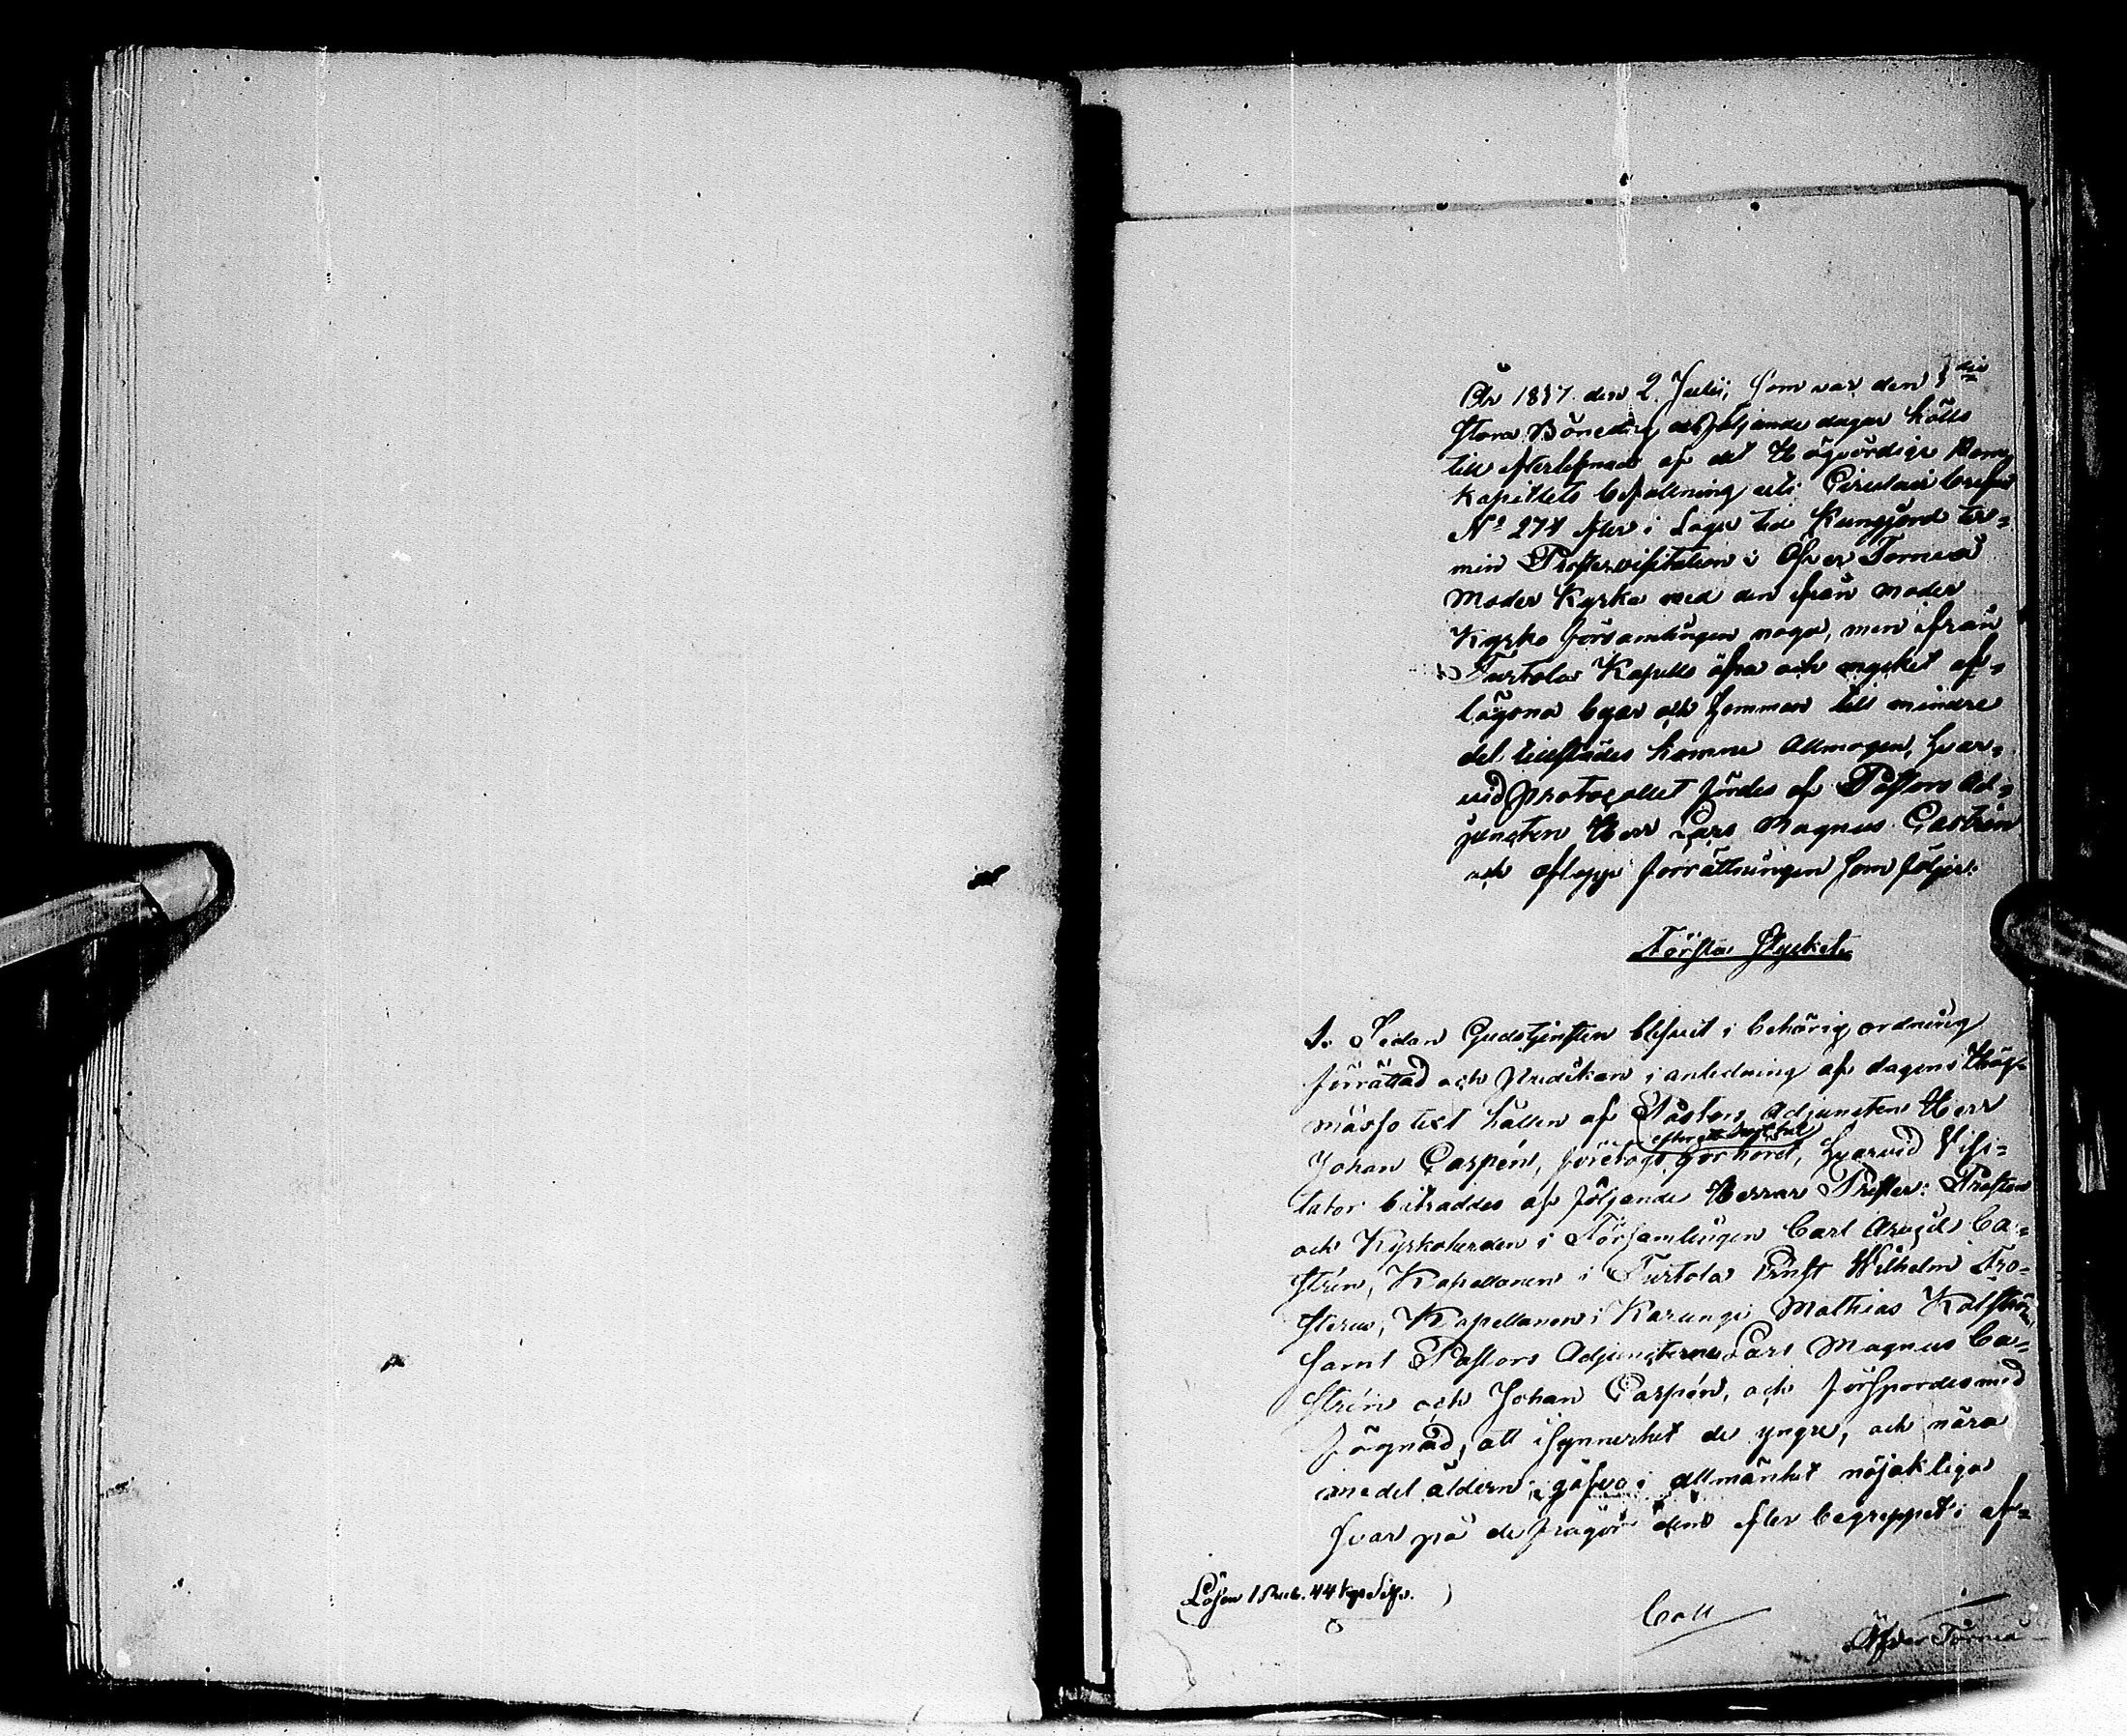 År 1837 den 2. Julii, som var den 3die
stora Bönedag och följande dagar hölls
till efterlefnad af det Högvördige Dom-
kapitlets befallning uti Circulair bref
N:o 274 efter i Laga tid Kungjord ter-
min Prostevisitation i Öfver Torneå
Moder Kyrka med den ifrån moder
Kyrko församlingen noga, men ifrån
Turtola Kapells öfra och mycket af-
lägsna byar och hemman till mindre
del tillstädes komne Allmogen, hvar-
vid protocollet fördes af Pastors Ad-
juncten Herr Lars Magnus Castrén
och aflopp förrättningen som följer:
Första Stycket.
1. Sedan Gudstjensten blifvit i behörig ordning
förrättad och Predikan i anledning af dagens Hög-
mässo text hållen af Pastors Adjuncten Herr
efter ett kort tal
Johan Carpén, företogs förhöret, hvarvid Visi-
tator biträddes af följande Herrar Prester: Prosten
och Kyrkoherden i Församlingen Carl Arvid Ca-
strén, Kapellanen i Turtola Ernst Wilhelm Fro-
sterus, Kapellanen i Karunge Mathias Kolström,
samt Pastors Adjuncterne Lars Magnus Ca-
strén och Johan Carpén, och försPordes med
fägnad, att isynnerhet de yngre, och nära
medel åldern, gåfvo i allmänhet nöjakliga
svar på de frågor dem efter begreppet i af-
Lösen 1 Rub. 44 kop Silfv.
Coll
Öfver Torneå